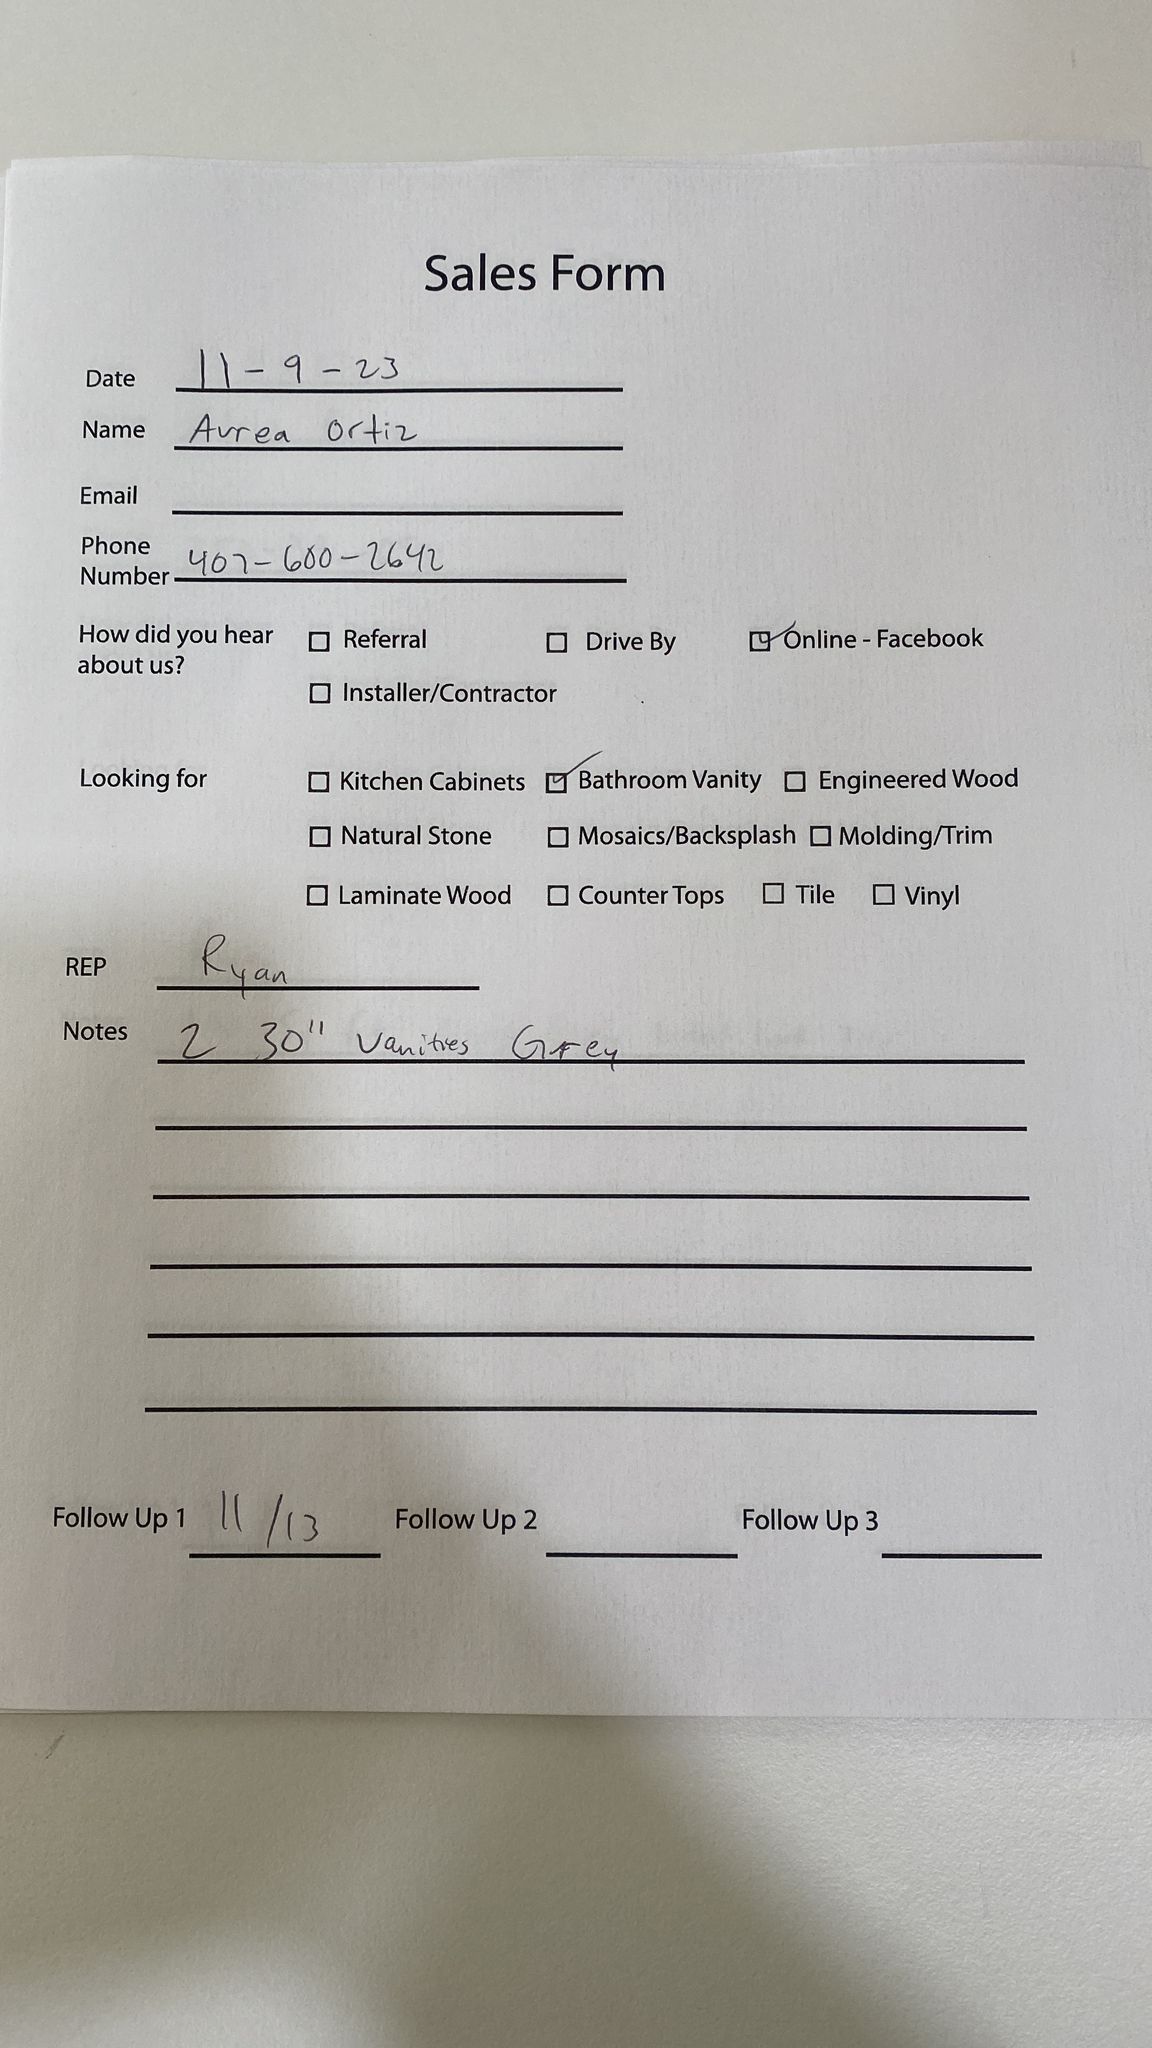 Sales Form
Date 11-9-23
Name Avrea Ortiz
Email
Phone
Number 407-600-2642
How did you hear about us? ☐ Referral ☐ Drive By ☑ Online - Facebook
☐ Installer/Contractor
Looking for ☐ Kitchen Cabinets ☑ Bathroom Vanity ☐ Engineered Wood
☐ Natural Stone ☐ Mosaics/Backsplash ☐ Molding/Trim
☐ Laminate Wood ☐ Counter Tops ☐ Tile ☐ Vinyl
REP Ryan
Notes 2 30" Vanities Grey
Follow Up 1 11/13 Follow Up 2 Follow Up 3